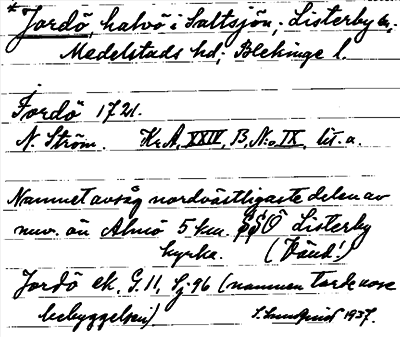 * Jordö, halvö i Saltsjön, Listerby sn,
Medelstads hd, Blekinge l.
Jordö 1721.
N. Ström. KrA, XXIV, B, No IX, lit. a.
Namnet avsåg nordvästligaste delen av
nuv. ön Almö 5 km. SSÖ Listerby
kyrka. (Vänd!)
Jordö ek. G. 11, Sj 96 (namnen torde avse
bebyggelsen) 1937.